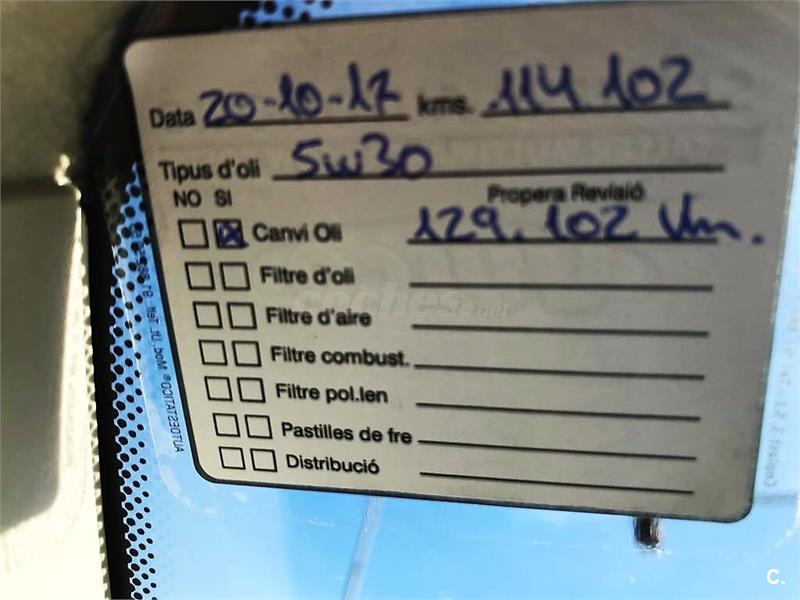 Data 20-10-17 kms. 114 102
Tipus d'oli 5w30
NO SI Propera Revisió
Canvi Oli 129.102 Km.
Filtre d'oli
coches.net
Filtre d'aire
Filtre combust.
Filtre pol.len
Pastilles de fre
Distribució
AUTOESTATICO®
C.